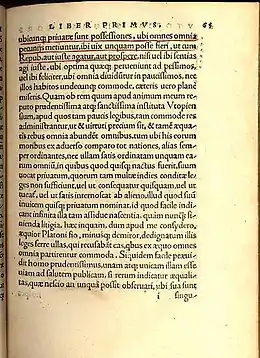 LIBER PRIMVS. 65
ubicunq; privatæ sunt possessiones, ubi omnes omnia
pecunijs metiuntur, ibi uix unquam posse fieri, ut cum
Repub. aut iuste agatur, aut prospere, nisi uel ibi sentias
agi iuste, ubi optima quæq; perueniunt ad pessimos,
uel ibi feliciter, ubi omnia diuiduntur in paucissimos, nec
illos habitos undecunq; commode, cæteris uero plane
miseris. Quam ob rem quum apud animum meum re
puto prudentissima atq; sanctissima instituta Vtopien
sium, apud quos tam paucis legibus, tam commode res
administrantur, ut & uirtuti precium sit, & tamē æqua
tis rebus omnia abundēt omnibus, tum ubi his eorum
moribus ex aduerso comparo tot nationes, alias sem=
per ordinantes, nec ullam satis ordinatam unquam ea=
rum omniū, in quibus quod quisq; nactus fuerit, suum
uocat priuatum, quorum tam multæ indies conditæ le
ges non sufficiunt, uel ut consequatur quisquam, uel ut
tueatur, uel ut satis internoscat ab alieno, illud quod suū
inuicem quisq; priuatum nominat, id quod facile indi
cant infinita illa tam assidue nascentia, quàm nunq; fi=
nienda litigia, hæc inquam, dum apud me considero,
æquior Platoni fio, minusq; demiror, dedignatum illis
leges ferre ullas, qui recusabāt eas, qbus ex æquo omnes
omnia partirentur commoda. Siquidem facile præui=
dit homo prudentissimus, unam atq; unicam illam esse
uiam ad salutem publicam, si rerum indicatur æquali=
tas, quæ nescio an unquā possit obseruari, ubi sua sunt
i singu=